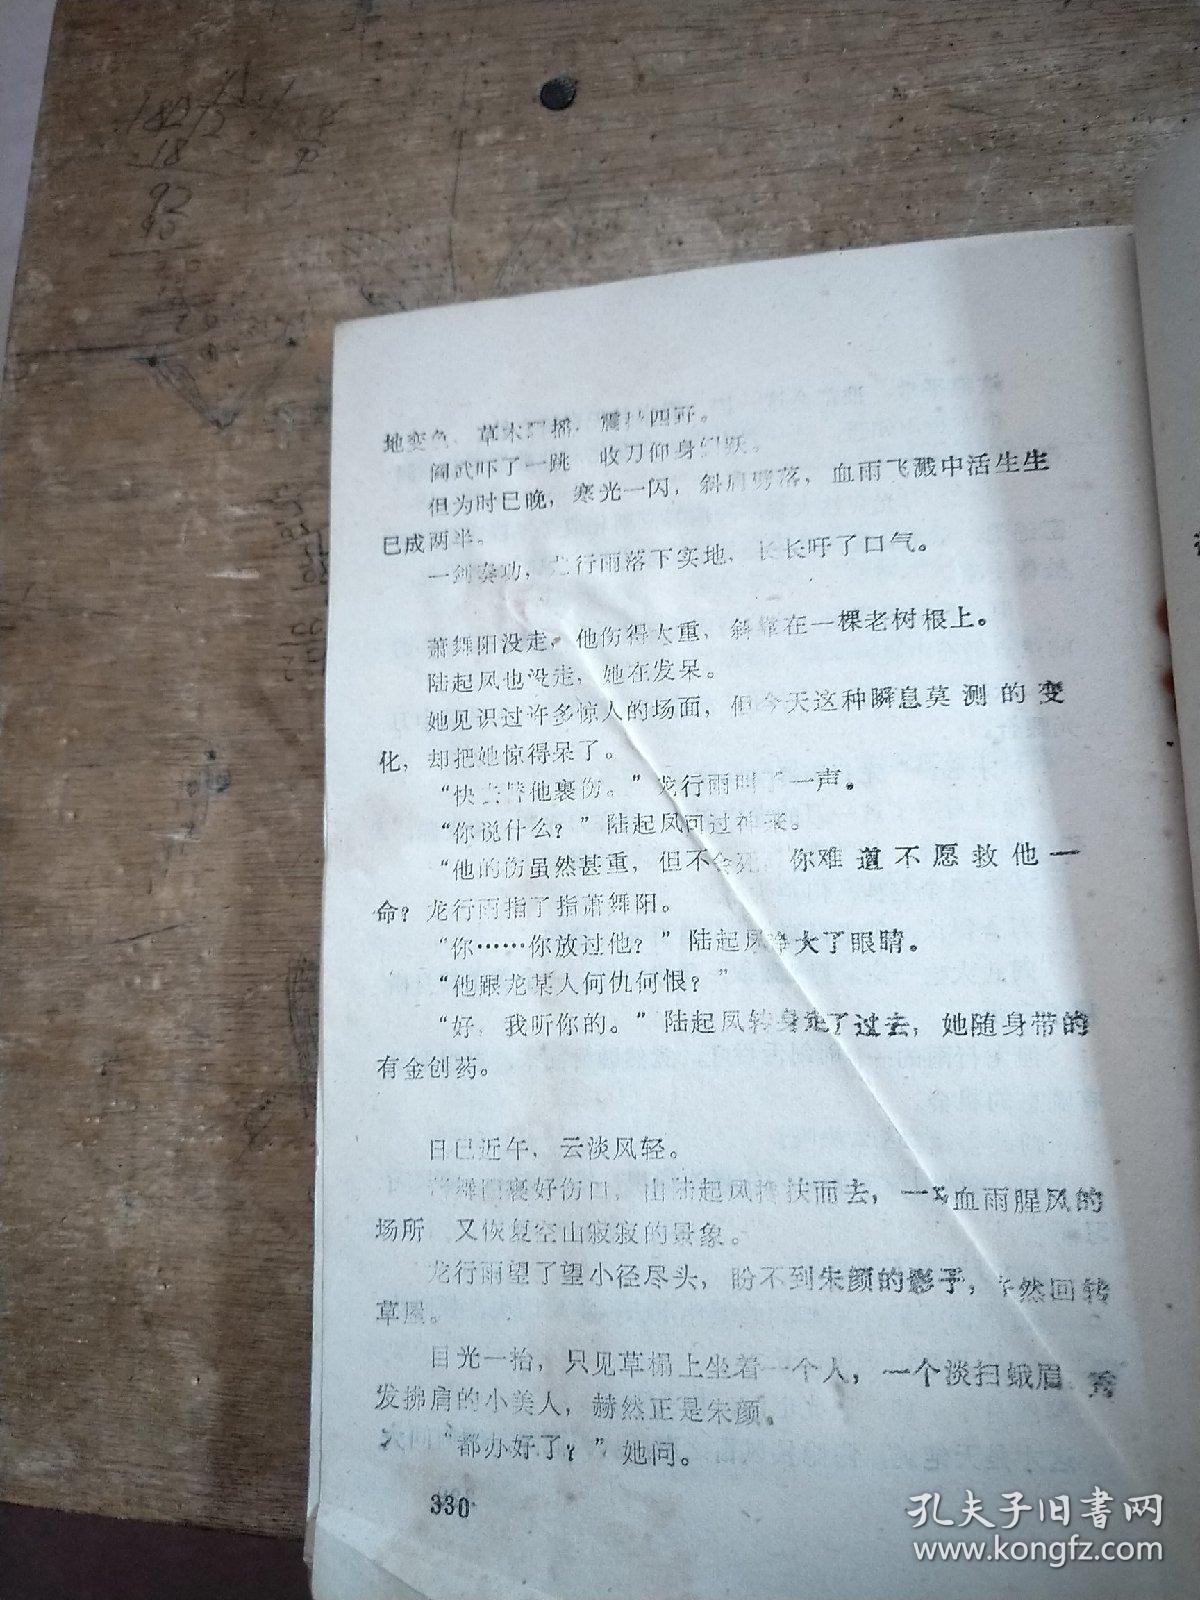 地变色、草木 播，震 四野。
阎武吓了一跳 收刀仰身 跃。
但为时已晚，寒光一闪，斜肩劈落，血雨飞溅中活生生
已成两半。
一剑奏功，龙行雨落下实地，长长吁了口气。
萧舞阳没走，他伤得太重，斜靠在一棵老树根上。
陆起凤也没走，她在发呆。
她见识过许多惊人的场面，但今天这种瞬息莫测的变
化，却把她惊得呆了。
“快去替他裹伤。”龙行雨叫了一声。
“你说什么？”陆起凤回过神来。
“他的伤虽然甚重，但不会死，你难道不愿救他一
命？龙行雨指了指萧舞阳。
“你……你放过他？”陆起凤睁大了眼睛。
“他跟龙某人何仇何恨？”
“好，我听你的。”陆起凤转身走了过去，她随身带的
有金创药。
日已近午，云淡风轻。
萧舞阳裹好伤口，由陆起凤搀扶而去，一 血雨腥风的
场所 又恢复空山寂寂的景象。
龙行雨望了望小径尽头，盼不到朱颜的影子， 然回转
草屋。
目光一抬，只见草榻上坐着一个人，一个淡扫蛾眉、秀
发拂肩的小美人，赫然正是朱颜。
“都办好了？”她问。
330
孔夫子旧书网
www.kongfz.com